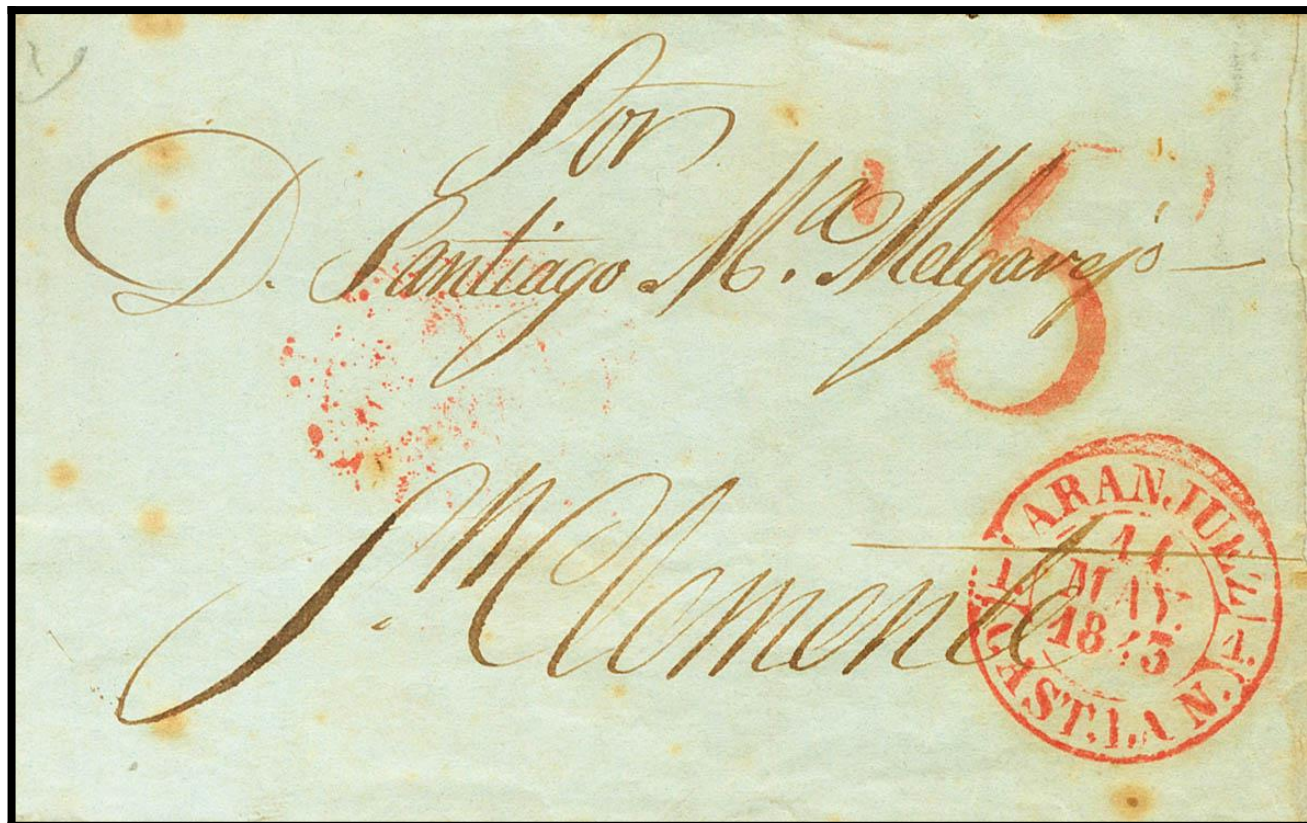 Sor
D. Santiago M.ª Melgarejo
5
S.n Clemente
ARANJUEZ
11
MAY.
1843
CAST. LA N.